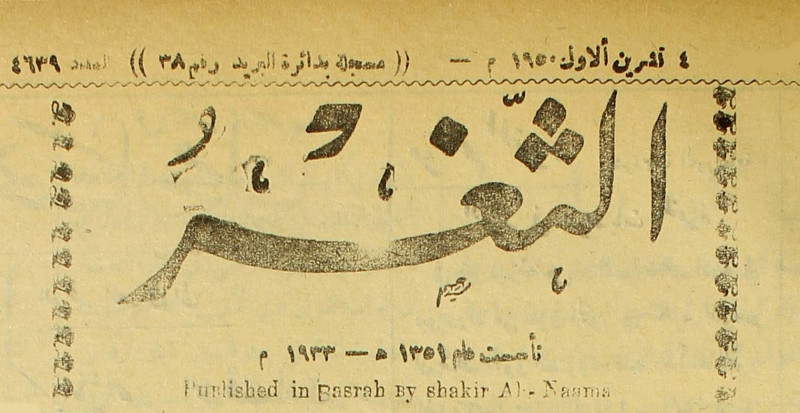 ٤ تشرين الاول ١٩٥٠ م — (( مسجلة بدائرة البريد رقم ٣٨ )) العدد ٤٦٣٩
الثَّغْرُ
تأسست عام ١٣٥١ ه — ١٩٣٣ م
Published in Basrah By shakir Al-Naama